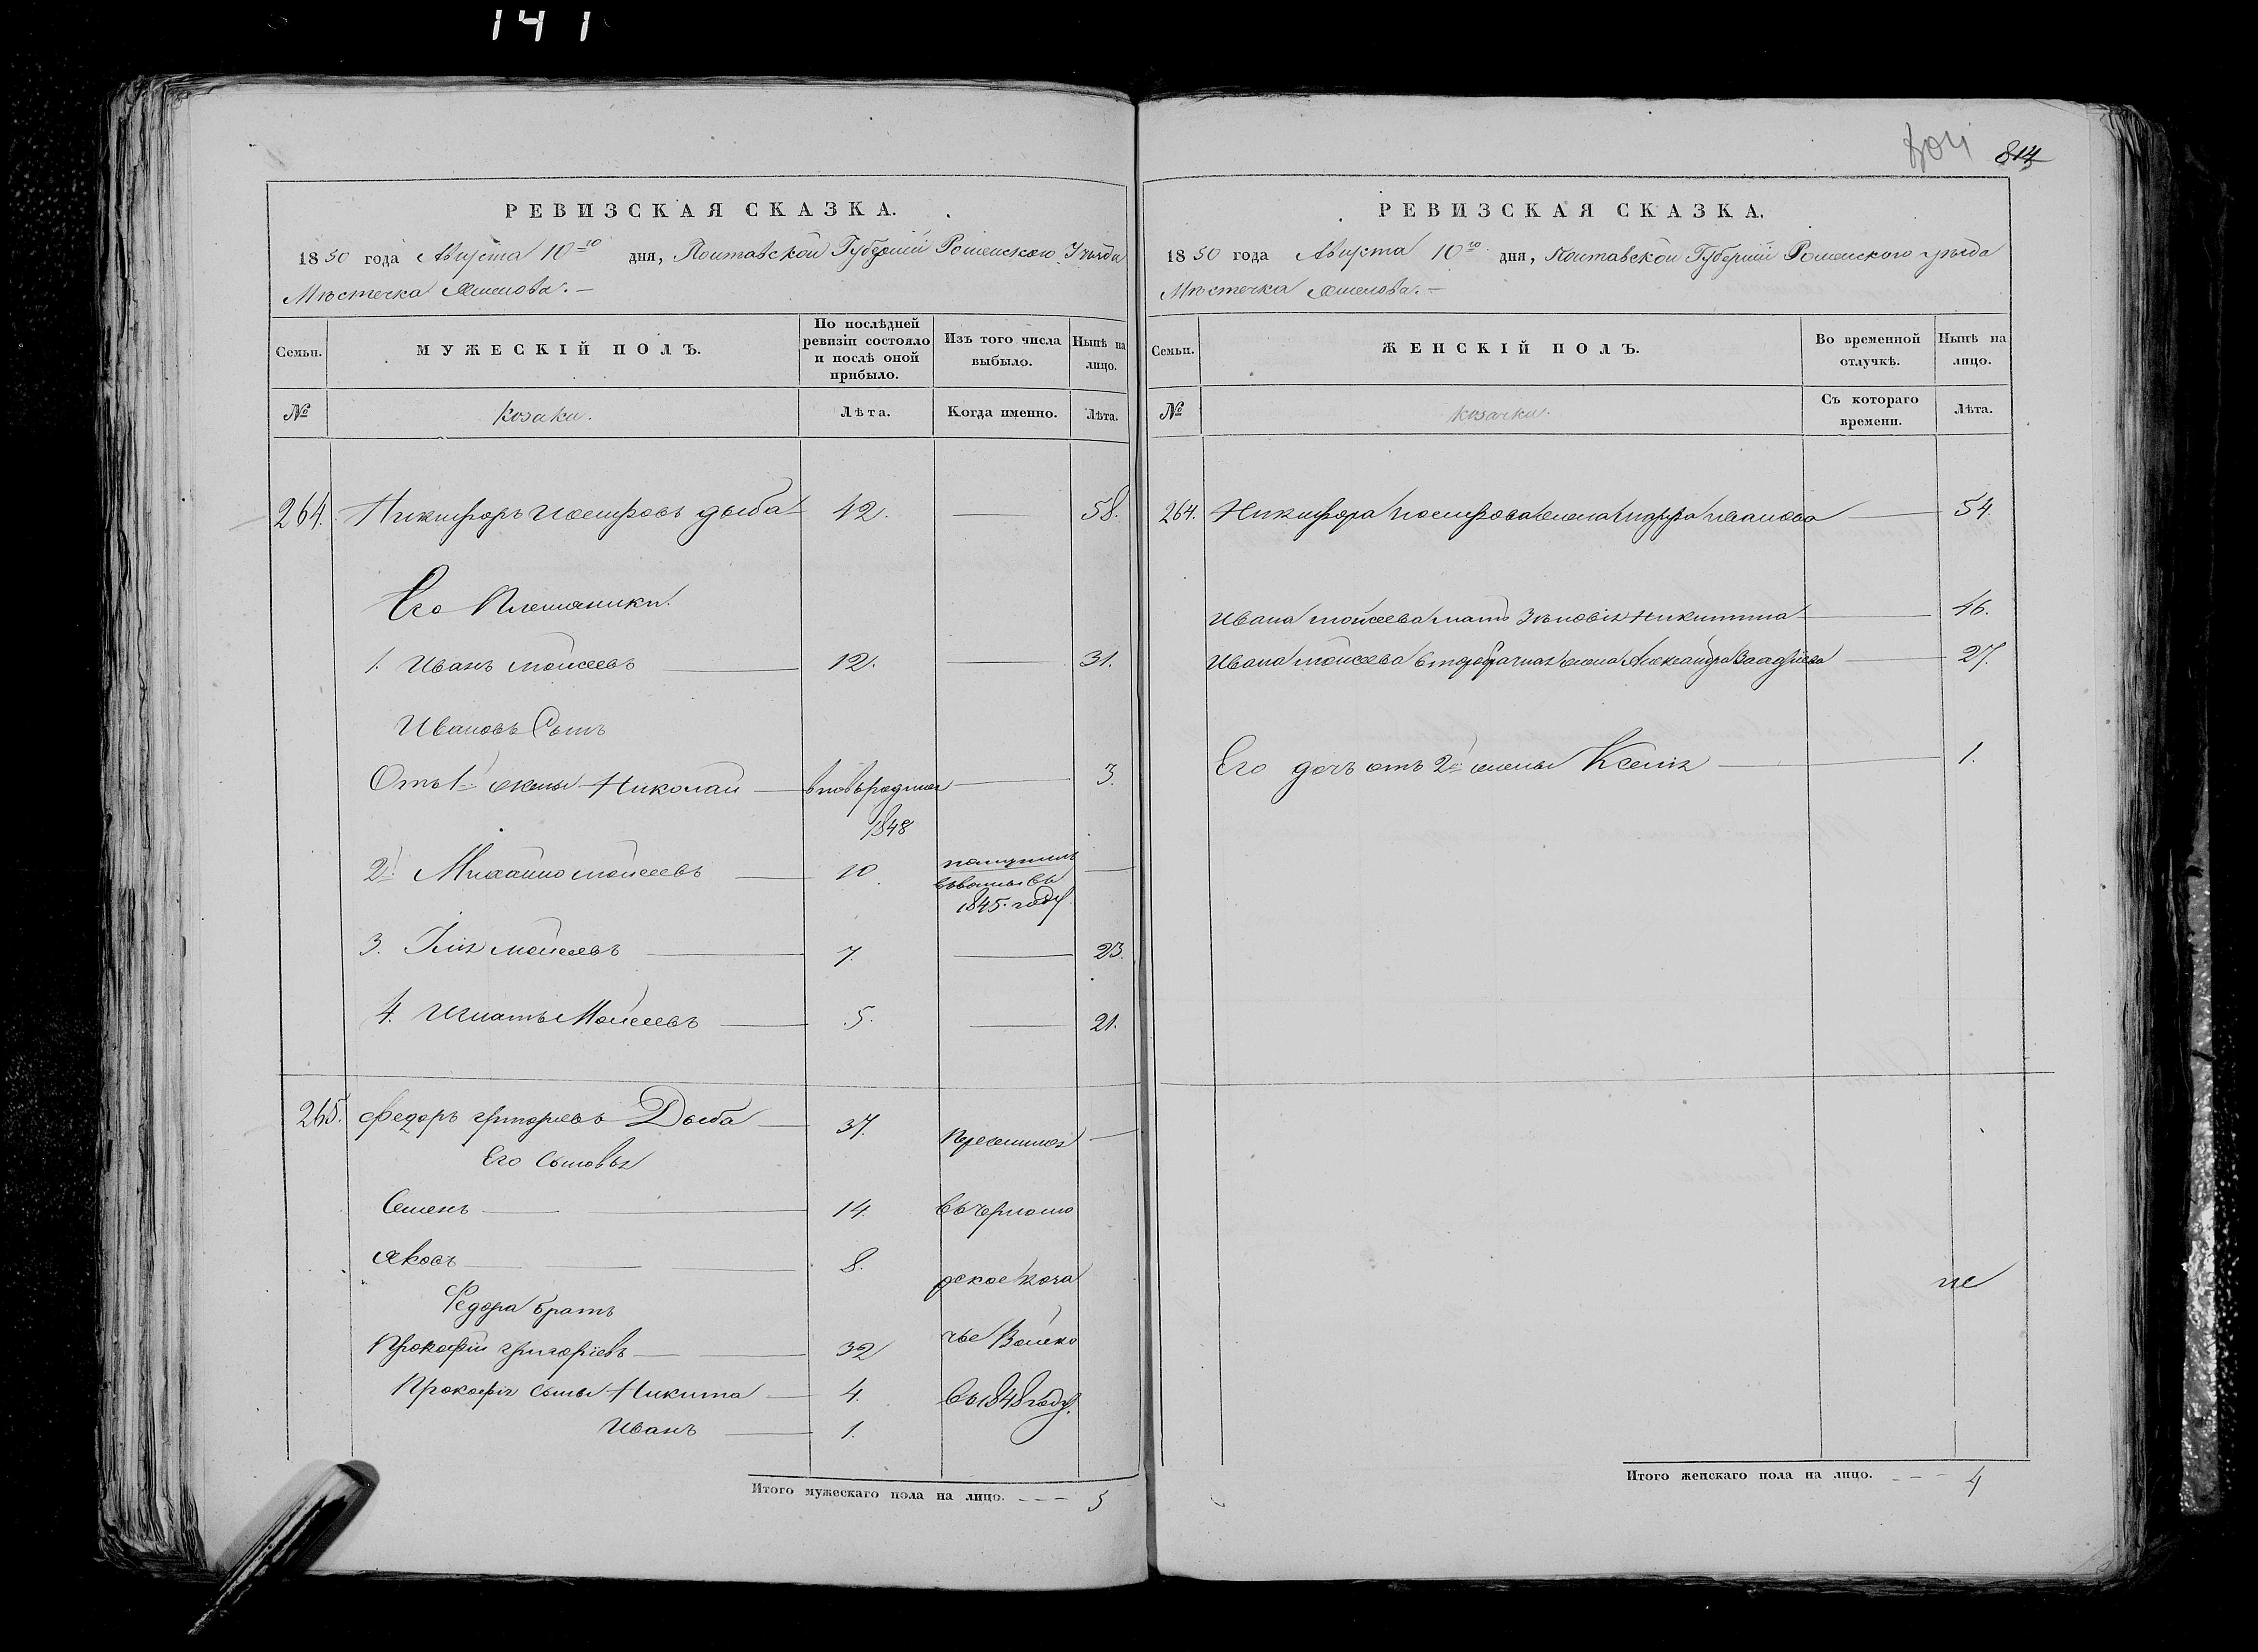 141
814
РЕВИЗСКАЯ СКАЗКА.
1850 года Августа 10го дня, Полтавской Губерніи Роменского Уѣзда
Мѣстечка
Семьи.
МУЖЕСКІЙ ПОЛЪ.
По послѣдней ревизіи состояло и послѣ оной прибыло.
Изъ того числа выбыло.
Нынѣ на лицо.
№
козаки.
Лѣта.
Когда именно.
Лѣта.
264. Никифоръ Иосифовъ Дыба 42. 58.
Его Племяники.
1. Иванъ Моисеевъ 12. 31.
Ивановъ Сынъ
Отъ 1й жены Николай вновьродился 3.
1848
2й Михайло Моисеевъ 10
въ
1845. году
3. Илія Моисеевъ 7. 23.
4. Игнатъ Моисеевъ 5. 21.
265. Федоръ Григориевъ Дыба 37. Переселился
Его Сыновья
Семенъ 14. въ Черномо
Яковъ 8. рское Коза
Федора братъ
Прокофій Григоріевъ 32 чье Войско
Прокофія сыны Никита 4. въ 1848 году.
Иванъ 1.
Итого мужескаго пола на лицо. 5
РЕВИЗСКАЯ СКАЗКА.
1850 года Августа 10го дня, Полтавской Губерніи Роменского уѣзда
Мѣстечка
Семьи.
ЖЕНСКІЙ ПОЛЪ.
Во временной отлучкѣ.
Нынѣ на лицо.
№
козачки.
Съ котораго времени.
Лѣта.
264. Никифора Иосифова жена Иванова 54.
Ивана Моисеева мать Зѣновія Никитина 46.
Ивана Моисеева второбрачная жена Александра 27.
Его дочь отъ 2й жены Ксенія 1.
Итого женскаго пола на лицо. 4